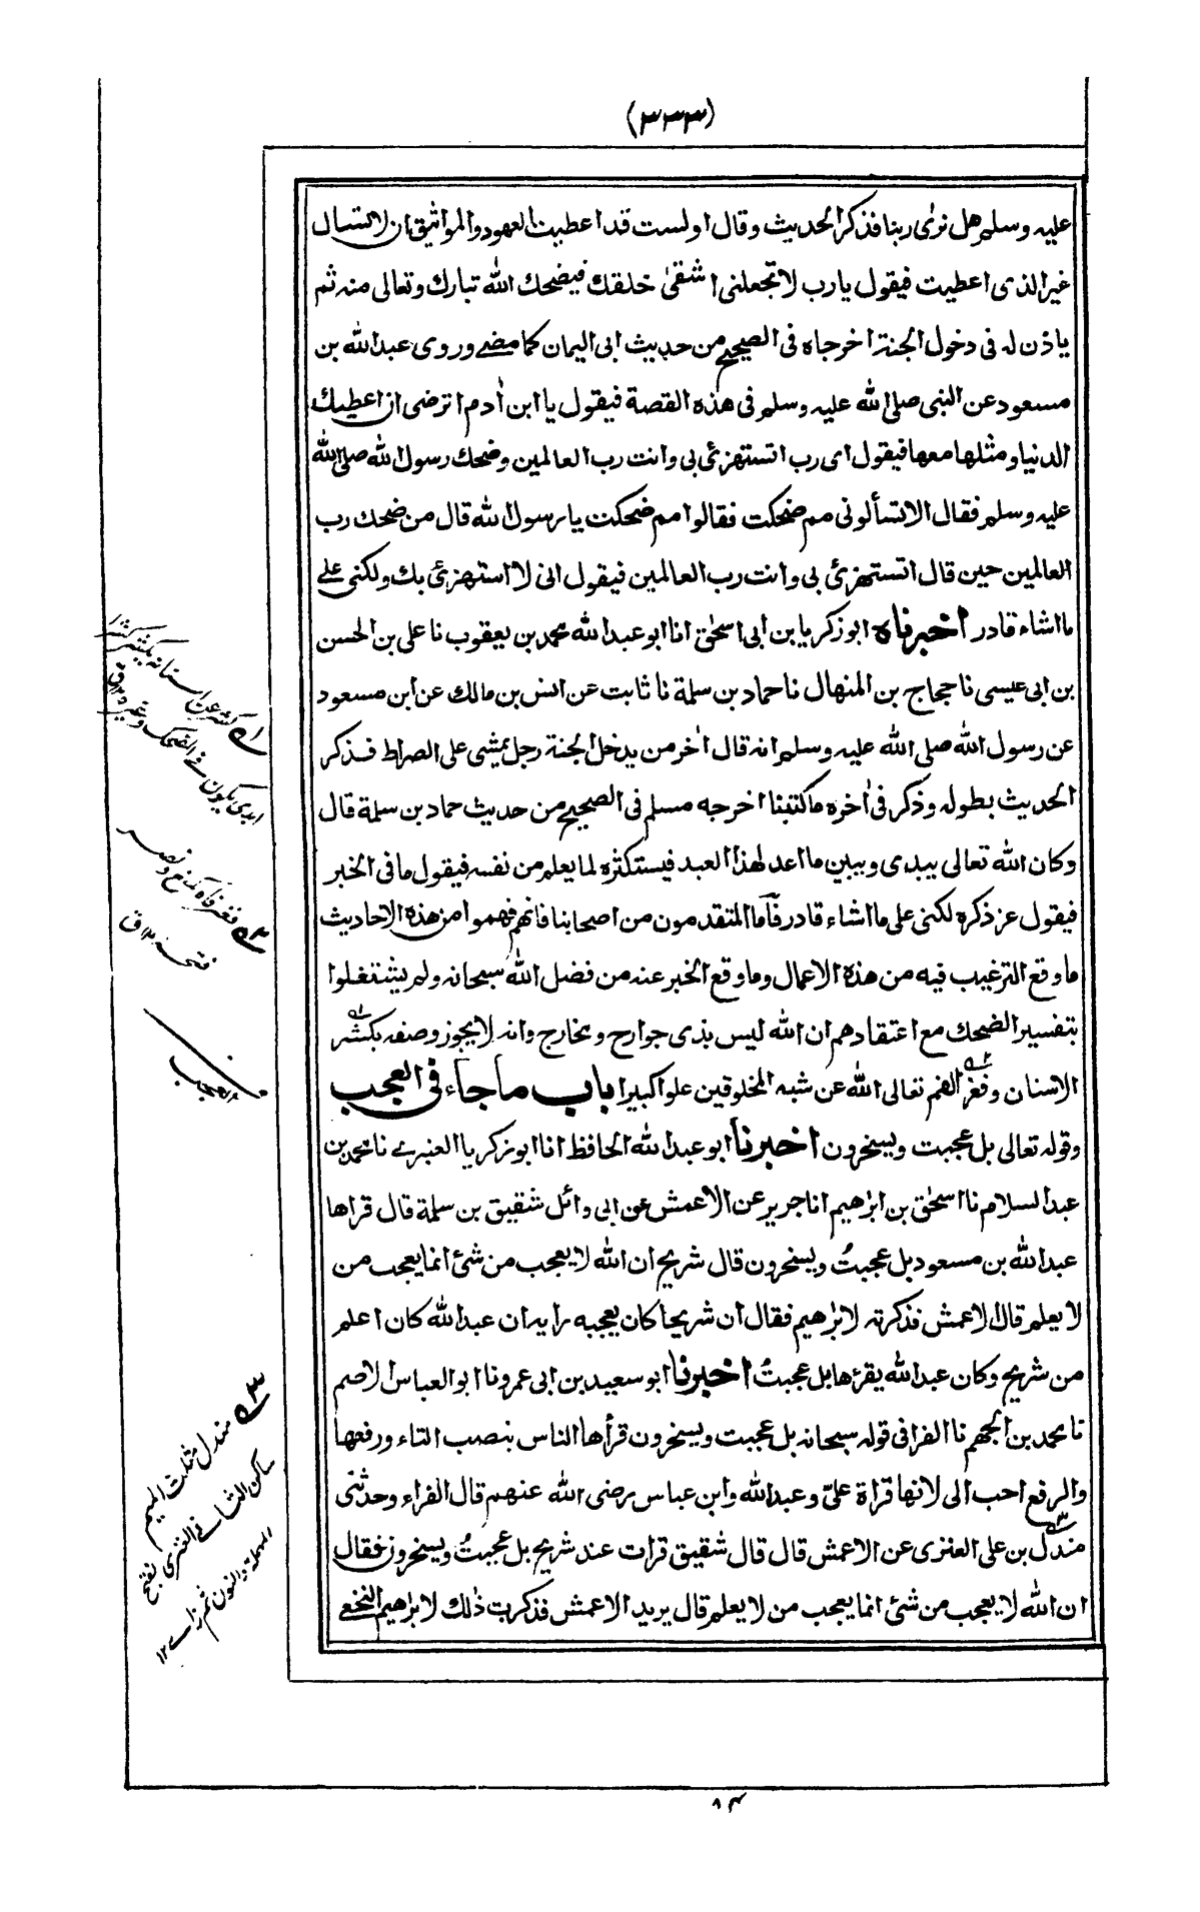 (٣٣٣)
عليه وسلم هل نرى ربنا فذكر الحديث وقال اولست قد اعطيت العهود والمواثيق ان لا تسال
غير الذى اعطيت فيقول يا رب لا تجعلنى اشقى خلقك فيضحك الله تبارك وتعالى منه ثم
ياذن له فى دخول الجنة اخرجاه فى الصحيح من حديث ابى اليمان كما مضى وروى عبد الله بن
مسعود عن النبى صلى الله عليه وسلم فى هذه القصة فيقول يا ابن اٰدم اترضى ان اعطيك
الدنيا ومثلها معها فيقول اى رب اتستهزئ بى وانت رب العالمين وضحك رسول الله صلى الله
عليه وسلم فقال الا تسألونى مم ضحكت فقالوا مم ضحكت يا رسول الله قال من ضحك رب
العالمين حين قال اتستهزئ بى وانت رب العالمين فيقول انى لا استهزئ بك ولكنى على
ما اشاء قادر اخبرناه ابو زكريا بن ابى اسحٰق انا ابو عبد الله محمد بن يعقوب نا على بن الحسن
بن ابى عيسى نا حجاج بن المنهال نا حماد بن سلمة نا ثابت عن انس بن مالك عن ابن مسعود
عن رسول الله صلى الله عليه وسلم انه قال اٰخر من يدخل الجنة رجل يمشى على الصراط فذكر
الحديث بطوله وذكر فى اٰخره ما كتبنا اخرجه مسلم فى الصحيح من حديث حماد بن سلمة قال
وكان الله تعالى يبدى ويبين ما اعد لهذا العبد فيستكثره لما يعلم من نفسه فيقول ما فى الخبر
فيقول عز ذكره لكنى على ما اشاء قادر فاما المتقدمون من اصحابنا فانهم فهموا من هذه الاحاديث
ما وقع الترغيب فيه من هذه الاعمال وما وقع الخبر عنه من فضل الله سبحانه ولم يشتغلوا
بتفسير الضحك مع اعتقادهم ان الله ليس بذى جوارح ومخارج وانه لا يجوز وصفه بكشر
الاسنان وفغر الفم تعالى الله عن شبه المخلوقين علوا كبيرا باب ما جاء فى العجب
وقوله تعالى بل عجبت ويسخرون اخبرنا ابو عبد الله الحافظ انا ابو زكريا العنبرى نا محمد بن
عبد السلام نا اسحٰق بن ابرٰهيم انا جرير عن الاعمش عن ابى وائل شقيق بن سلمة قال قراها
عبد الله بن مسعود بل عجبتُ ويسخرون قال شريح ان الله لا يعجب من شئ انما يعجب من
لا يعلم قال الاعمش فذكرته لابرٰهيم فقال ان شريحا كان يعجبه رايه ان عبد الله كان اعلم
من شريح وكان عبد الله يقرءها بل عجبتُ اخبرنا ابو سعيد بن ابى عمرو نا ابو العباس الاصم
نا محمد بن الجهم نا الفرا فى قوله سبحانه بل عجبت ويسخرون قرأها الناس بنصب التاء ورفعها
والرفع احب الى لانها قراة علىّ وعبد الله وابن عباس رضى الله عنهم قال الفراء وحدثنى
مندل بن على العنزى عن الاعمش قال قال شقيق قرات عند شريح بل عجبتُ ويسخرون فقال
ان الله لا يعجب من شئ انما يعجب من لا يعلم قال يريد الاعمش فذكرت ذٰلك لابرٰهيم النخعى
العجب
مندل مثلث الميم
ساكن الثانى العنزى بفتح
المهملة والنون ثم زاى ١٢
٨٣